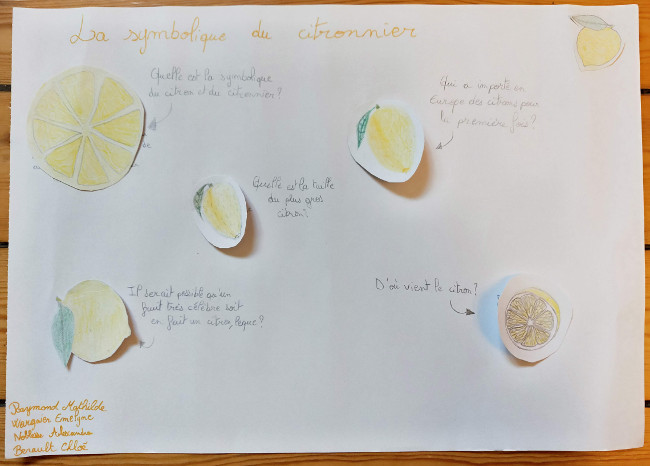 La symbolique du citronnier
Quelle est la symbolique
du citron et du citronnier?
Qui a importé en
Europe des citrons pour
la première fois?
Quelle est la taille
du plus gros
citron?
D'où vient le citron?
Il serait possible qu'un
fruit très célèbre soit
en fait un citron, lequel?
Raymond Mathilde
Emelyne
Alexandra
Berault Chloé